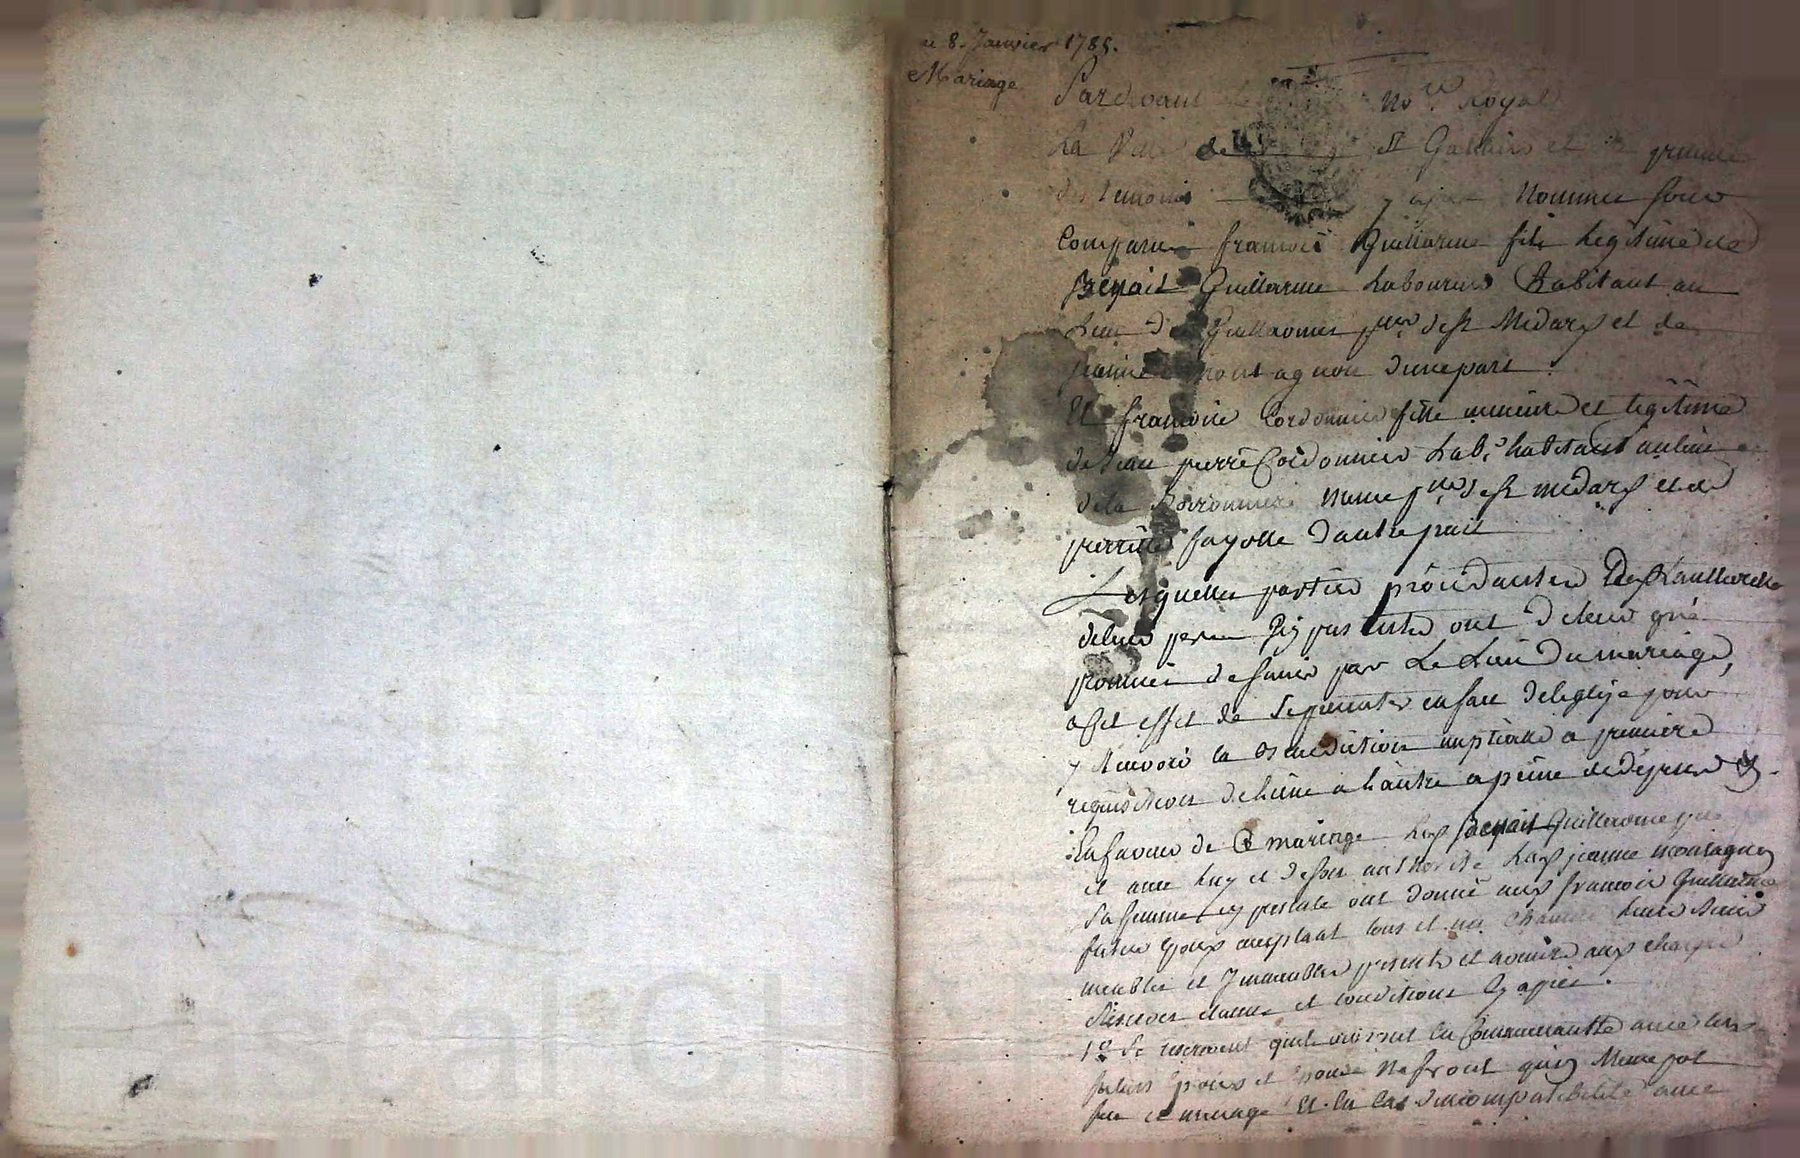 8. Janvier 1785.
Mariage
Pardevant no.re Royal
La Ville de St Galmier et
des temoins nommes fure
Comparu francois Guillaume fils legitime de
Benoit Guillaume Laboureur habitant au
Lieu d Guillaumes p.sse de St Medard et de
jeanne Montagnon d'une part
Et francoise Cordonnier fille mineure et legitime
de Jean pierre Cordonnier Lab.r habitant au lieu
de la même p.sse de St medard et de
pierrette fayolle d'autre part
Lesquelles parties procedantes de l'authorité
de leurs pere cy presents ont de leur gré
promis de s'unir par Le Lien du mariage,
a Cet effet de se presenter en face de leglise pour
y recevoir la Benediction nuptialle a premiere
requisition de lune a lautre a peine de depens &.
En faveur de Ce mariage Led Benoit Guillaume pere
et avec Luy et de son authorité Lad jeanne montagnon
sa femme cy presente ont donné aud francois Guillaume
futur Epoux acceptant tous et un Chacun leurs biens
meubles et Immeubles presents et avenir aux charges
reserves clauses et conditions Cy apres.
1° Se reservent quils vivront En Communauté avec les
futurs Epoux et Epouse Ne front qu'un Meme pot
feu et menage Et En Cas d'incompatibilité avec